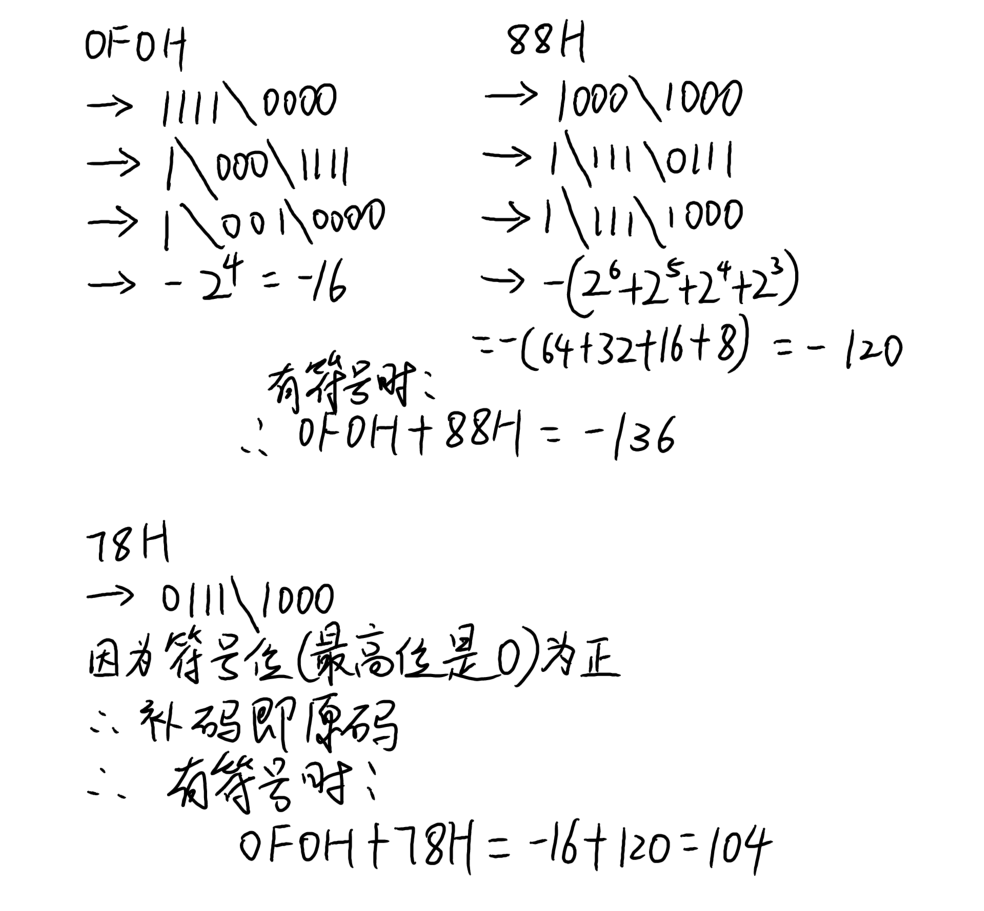 0F0H
→ 1111\0000
→ 1\000\1111
→ 1\001\0000
→ -2⁴ = -16
88H
→ 1000\1000
→ 1\111\0111
→ 1\111\1000
→ -(2⁶+2⁵+2⁴+2³)
=-(64+32+16+8) = -120
有符号时:
∴ 0F0H+88H = -136
78H
→ 0111\1000
因为符号位(最高位是0)为正
∴ 补码即原码
∴ 有符号时:
0F0H+78H = -16+120=104